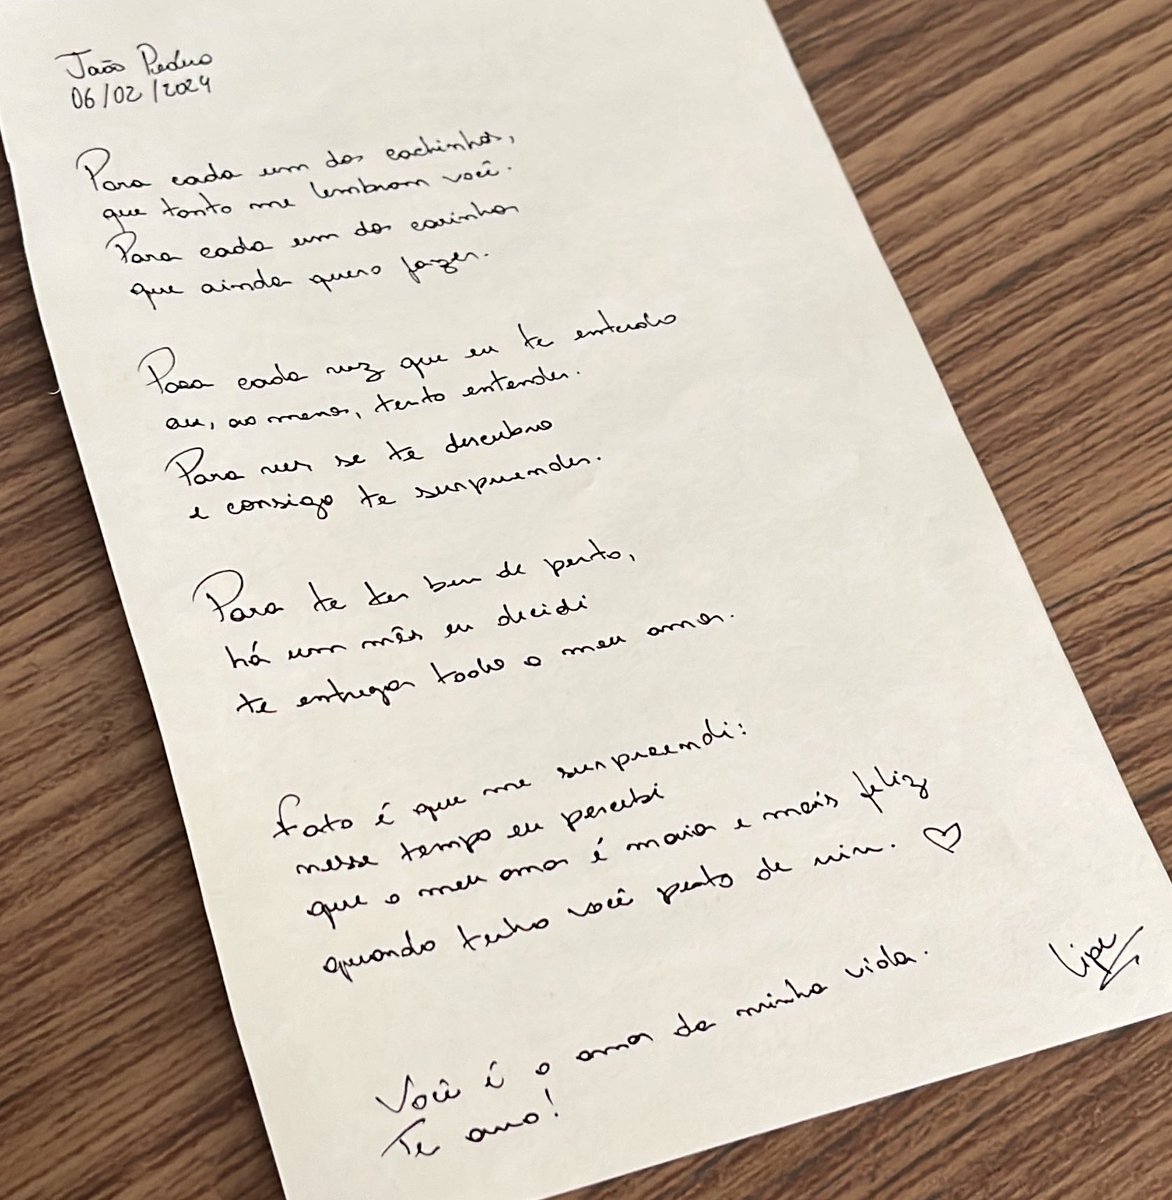 João Pedro
06/02/2024
Para cada um dos cachinhos,
que tanto me lembram você.
Para cada um dos carinhos
que ainda quero fazer.
Para cada vez que eu te entendo
ou, ao menos, tento entender.
Para ver se te descubro
e consigo te surpreender.
Para te ter bem de perto,
há um mês eu decidi
te entregar todo o meu amor.
Fato é que me surpreendi:
nesse tempo eu percebi
que o meu amor é maior e mais feliz
quando tenho você perto de mim. ♡
Lipe
Você é o amor da minha vida.
Te amo!